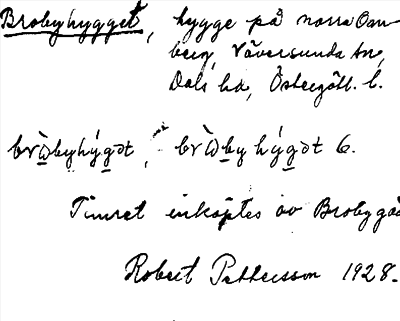 Brobyhygget, hygge på norra Om-
berg, Väversunda sn,
Dals hd, Östergötl. l.
bròbyhýgət, bròbyhýgət 6.
Timret inköptes av
Robert Pettersson 1928.